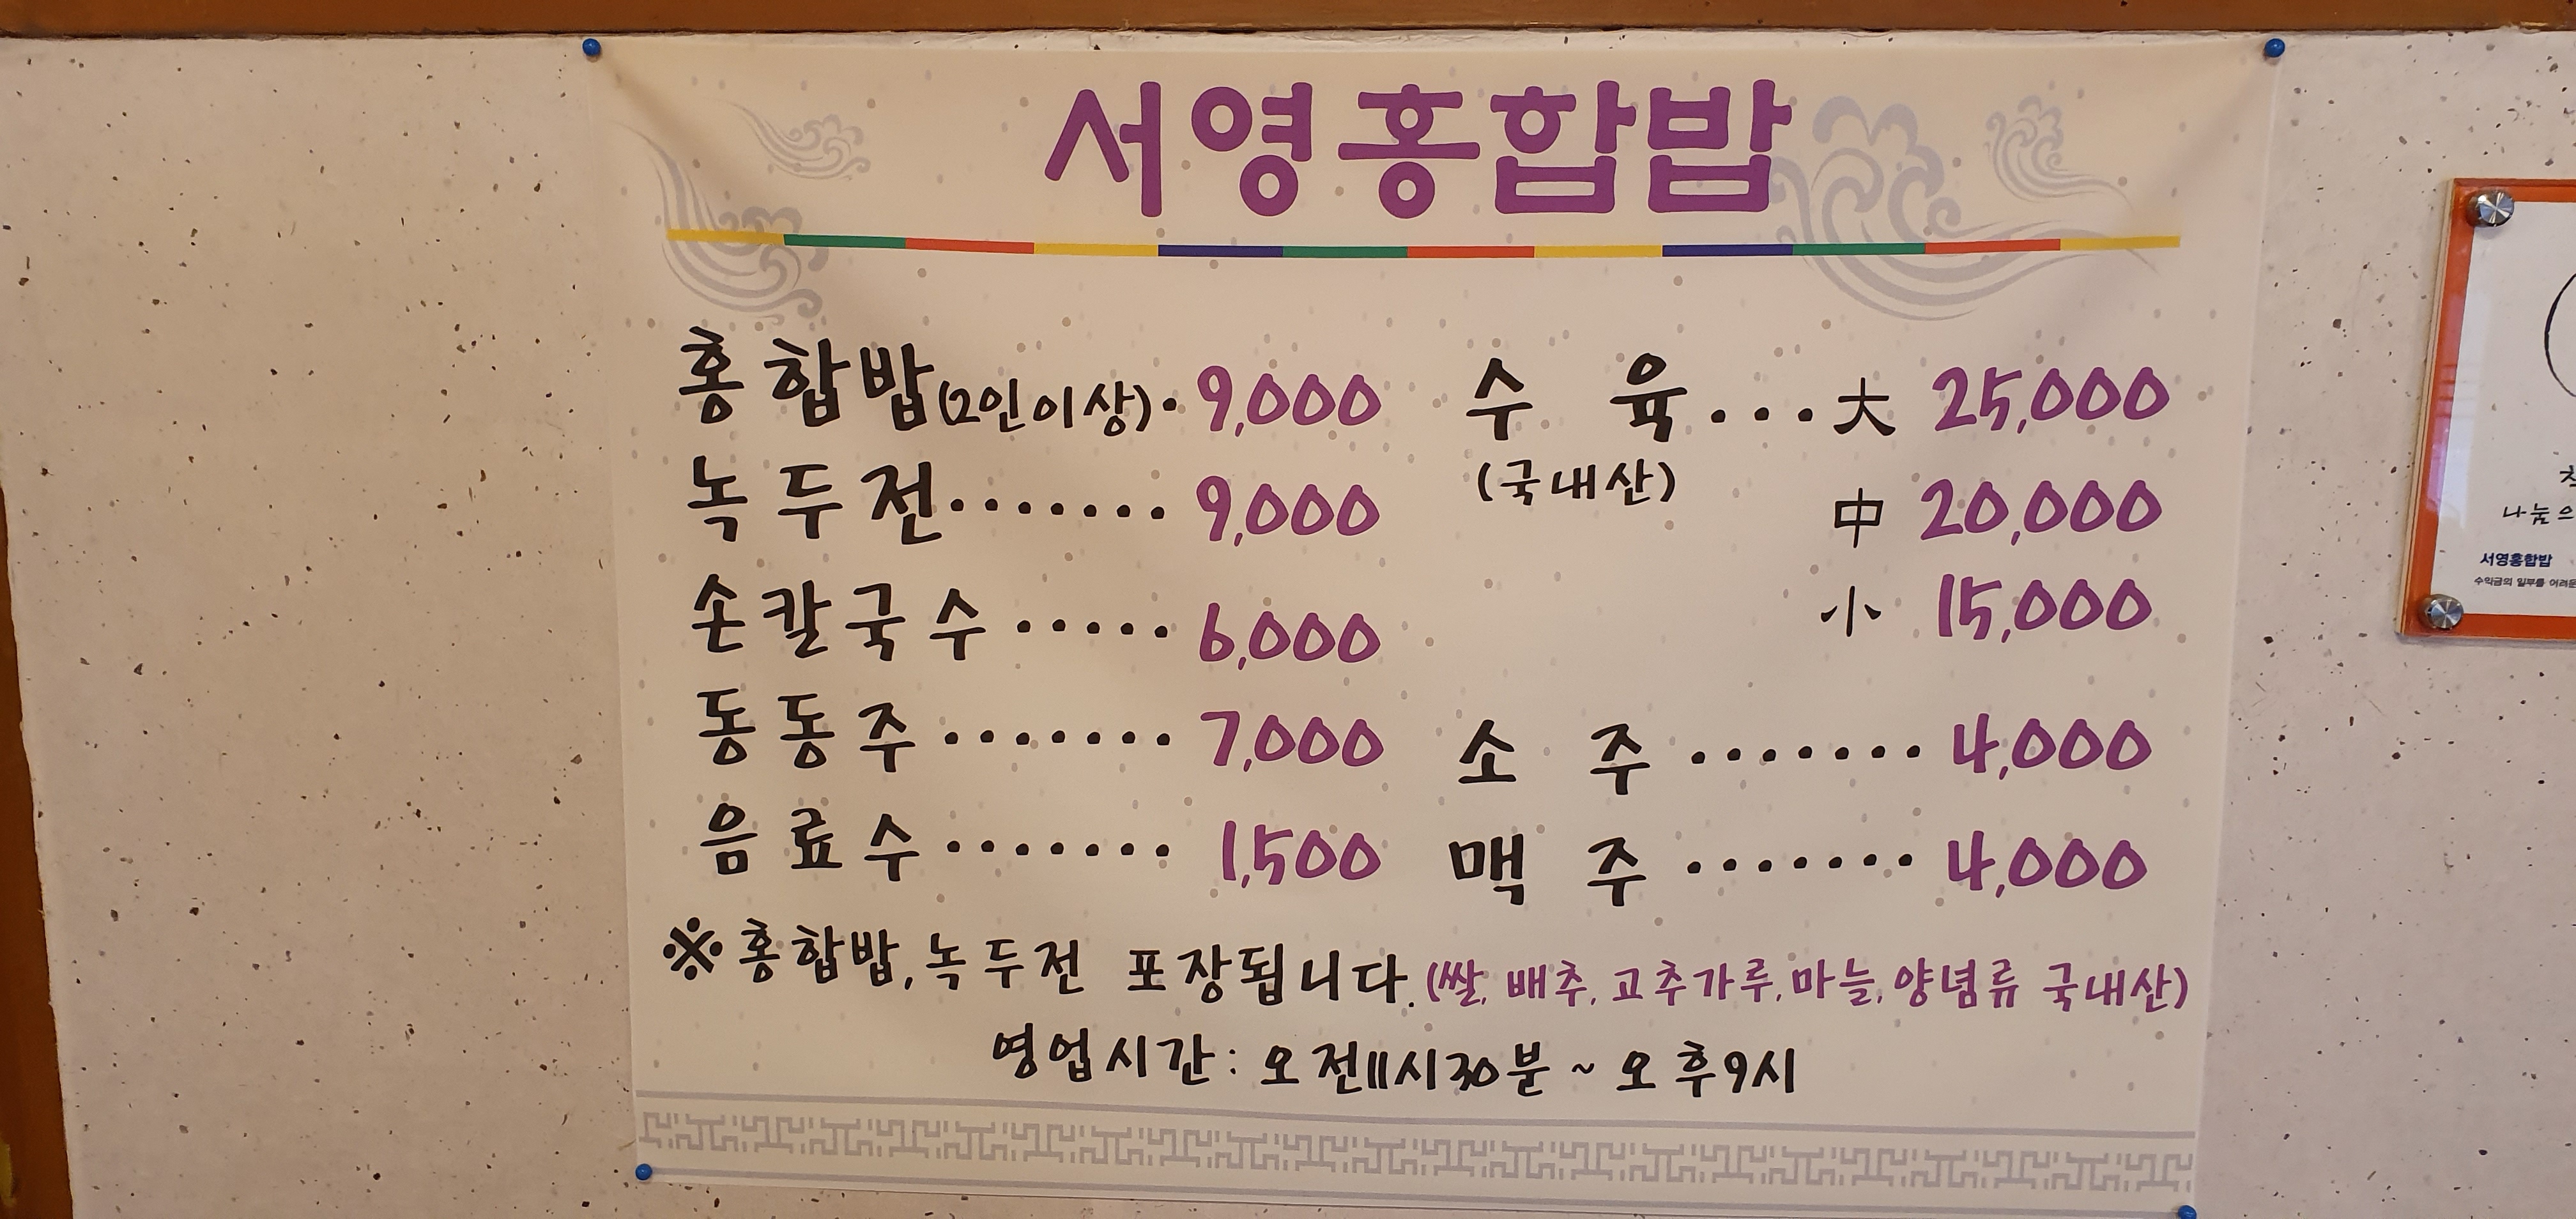 서영홍합밥
홍합밥(2인이상)· 9,000
녹두전······· 9,000
손칼국수····· 6,000
동동주······· 7,000
음료수······· 1,500
수 육...大 25,000
(국내산)
中 20,000
小 15,000
소 주 ······· 4,000
맥 주 ······· 4,000
※홍합밥,녹두전 포장됩니다.(쌀, 배추, 고추가루, 마늘, 양념류 국내산)
영업시간: 오전11시30분 ~ 오후9시
나눔으
서영홍합밥
수익금의 일부를 어려운